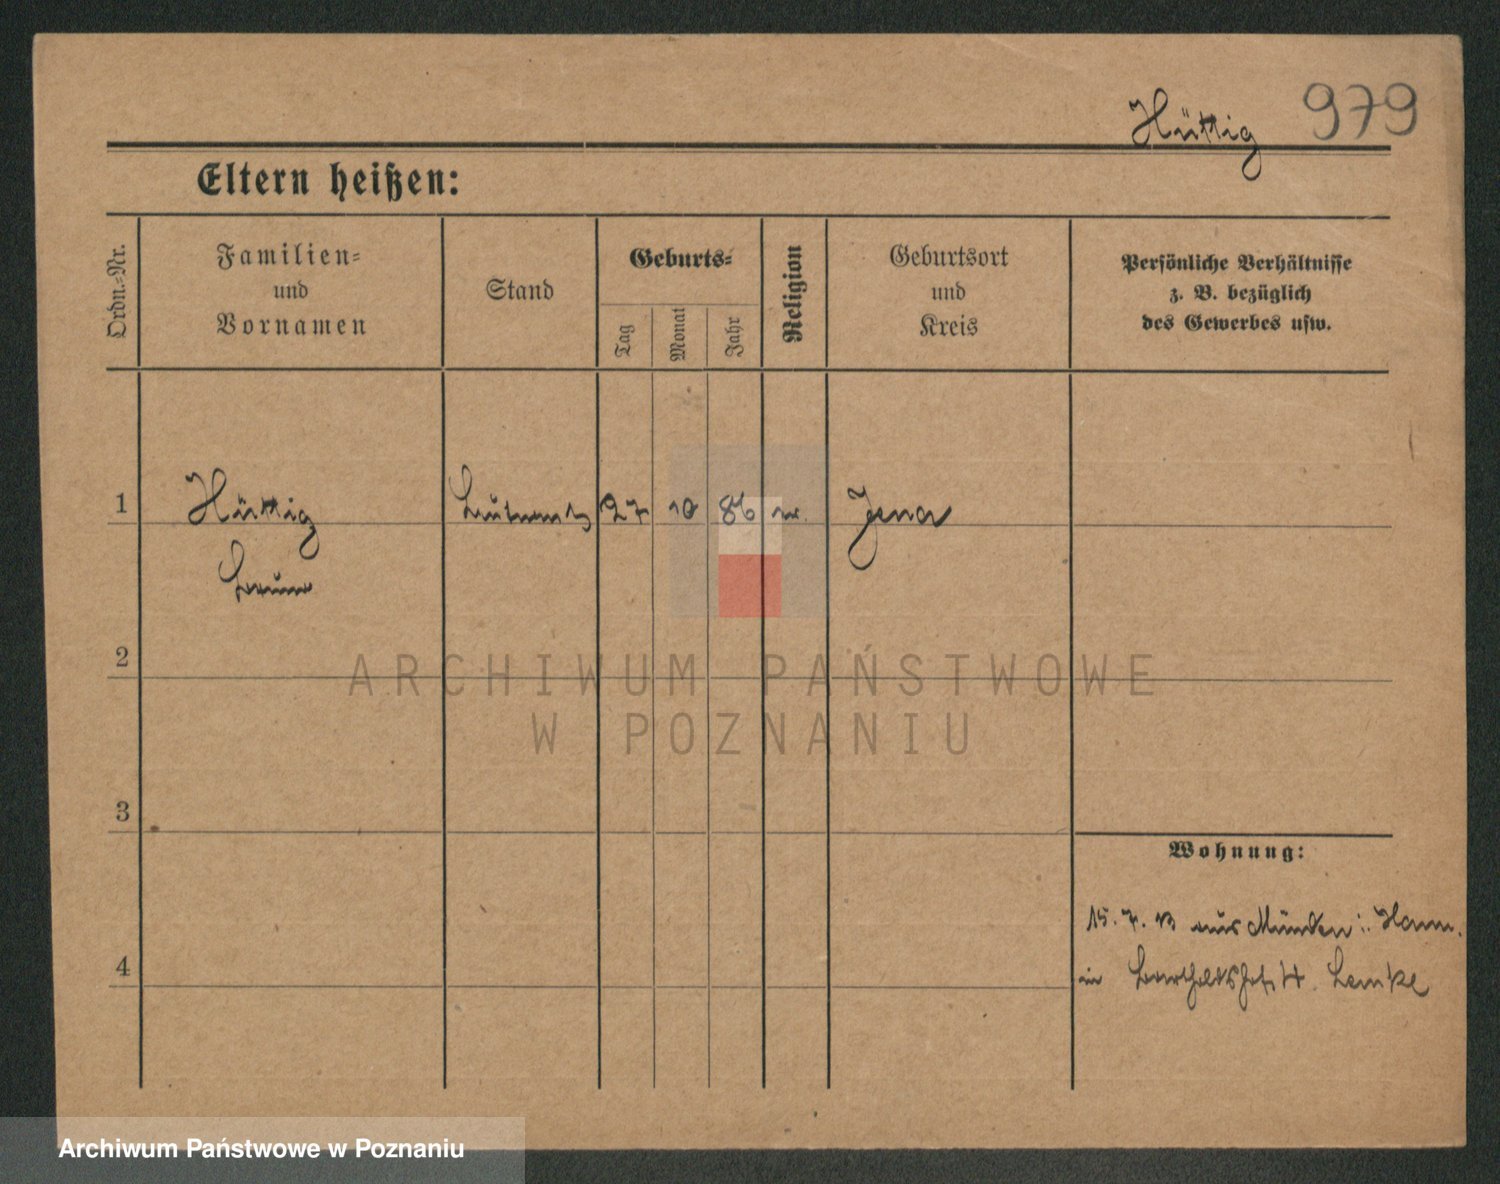 Hüttig 979
Eltern heißen:
Ordn.-Nr.
Familien-
und
Vornamen
Stand
Geburts-
Tag
Monat
Jahr
Religion
Geburtsort
und
Kreis
Persönliche Verhältnisse
z. B. bezüglich
des Gewerbes usw.
1 Hüttig 27 10 86 Jena
2
3
4
Wohnung:
15. 7. 13 aus Münden i. Hann.
in Lemke
ARCHIWUM PAŃSTWOWE
W POZNANIU
Archiwum Państwowe w Poznaniu